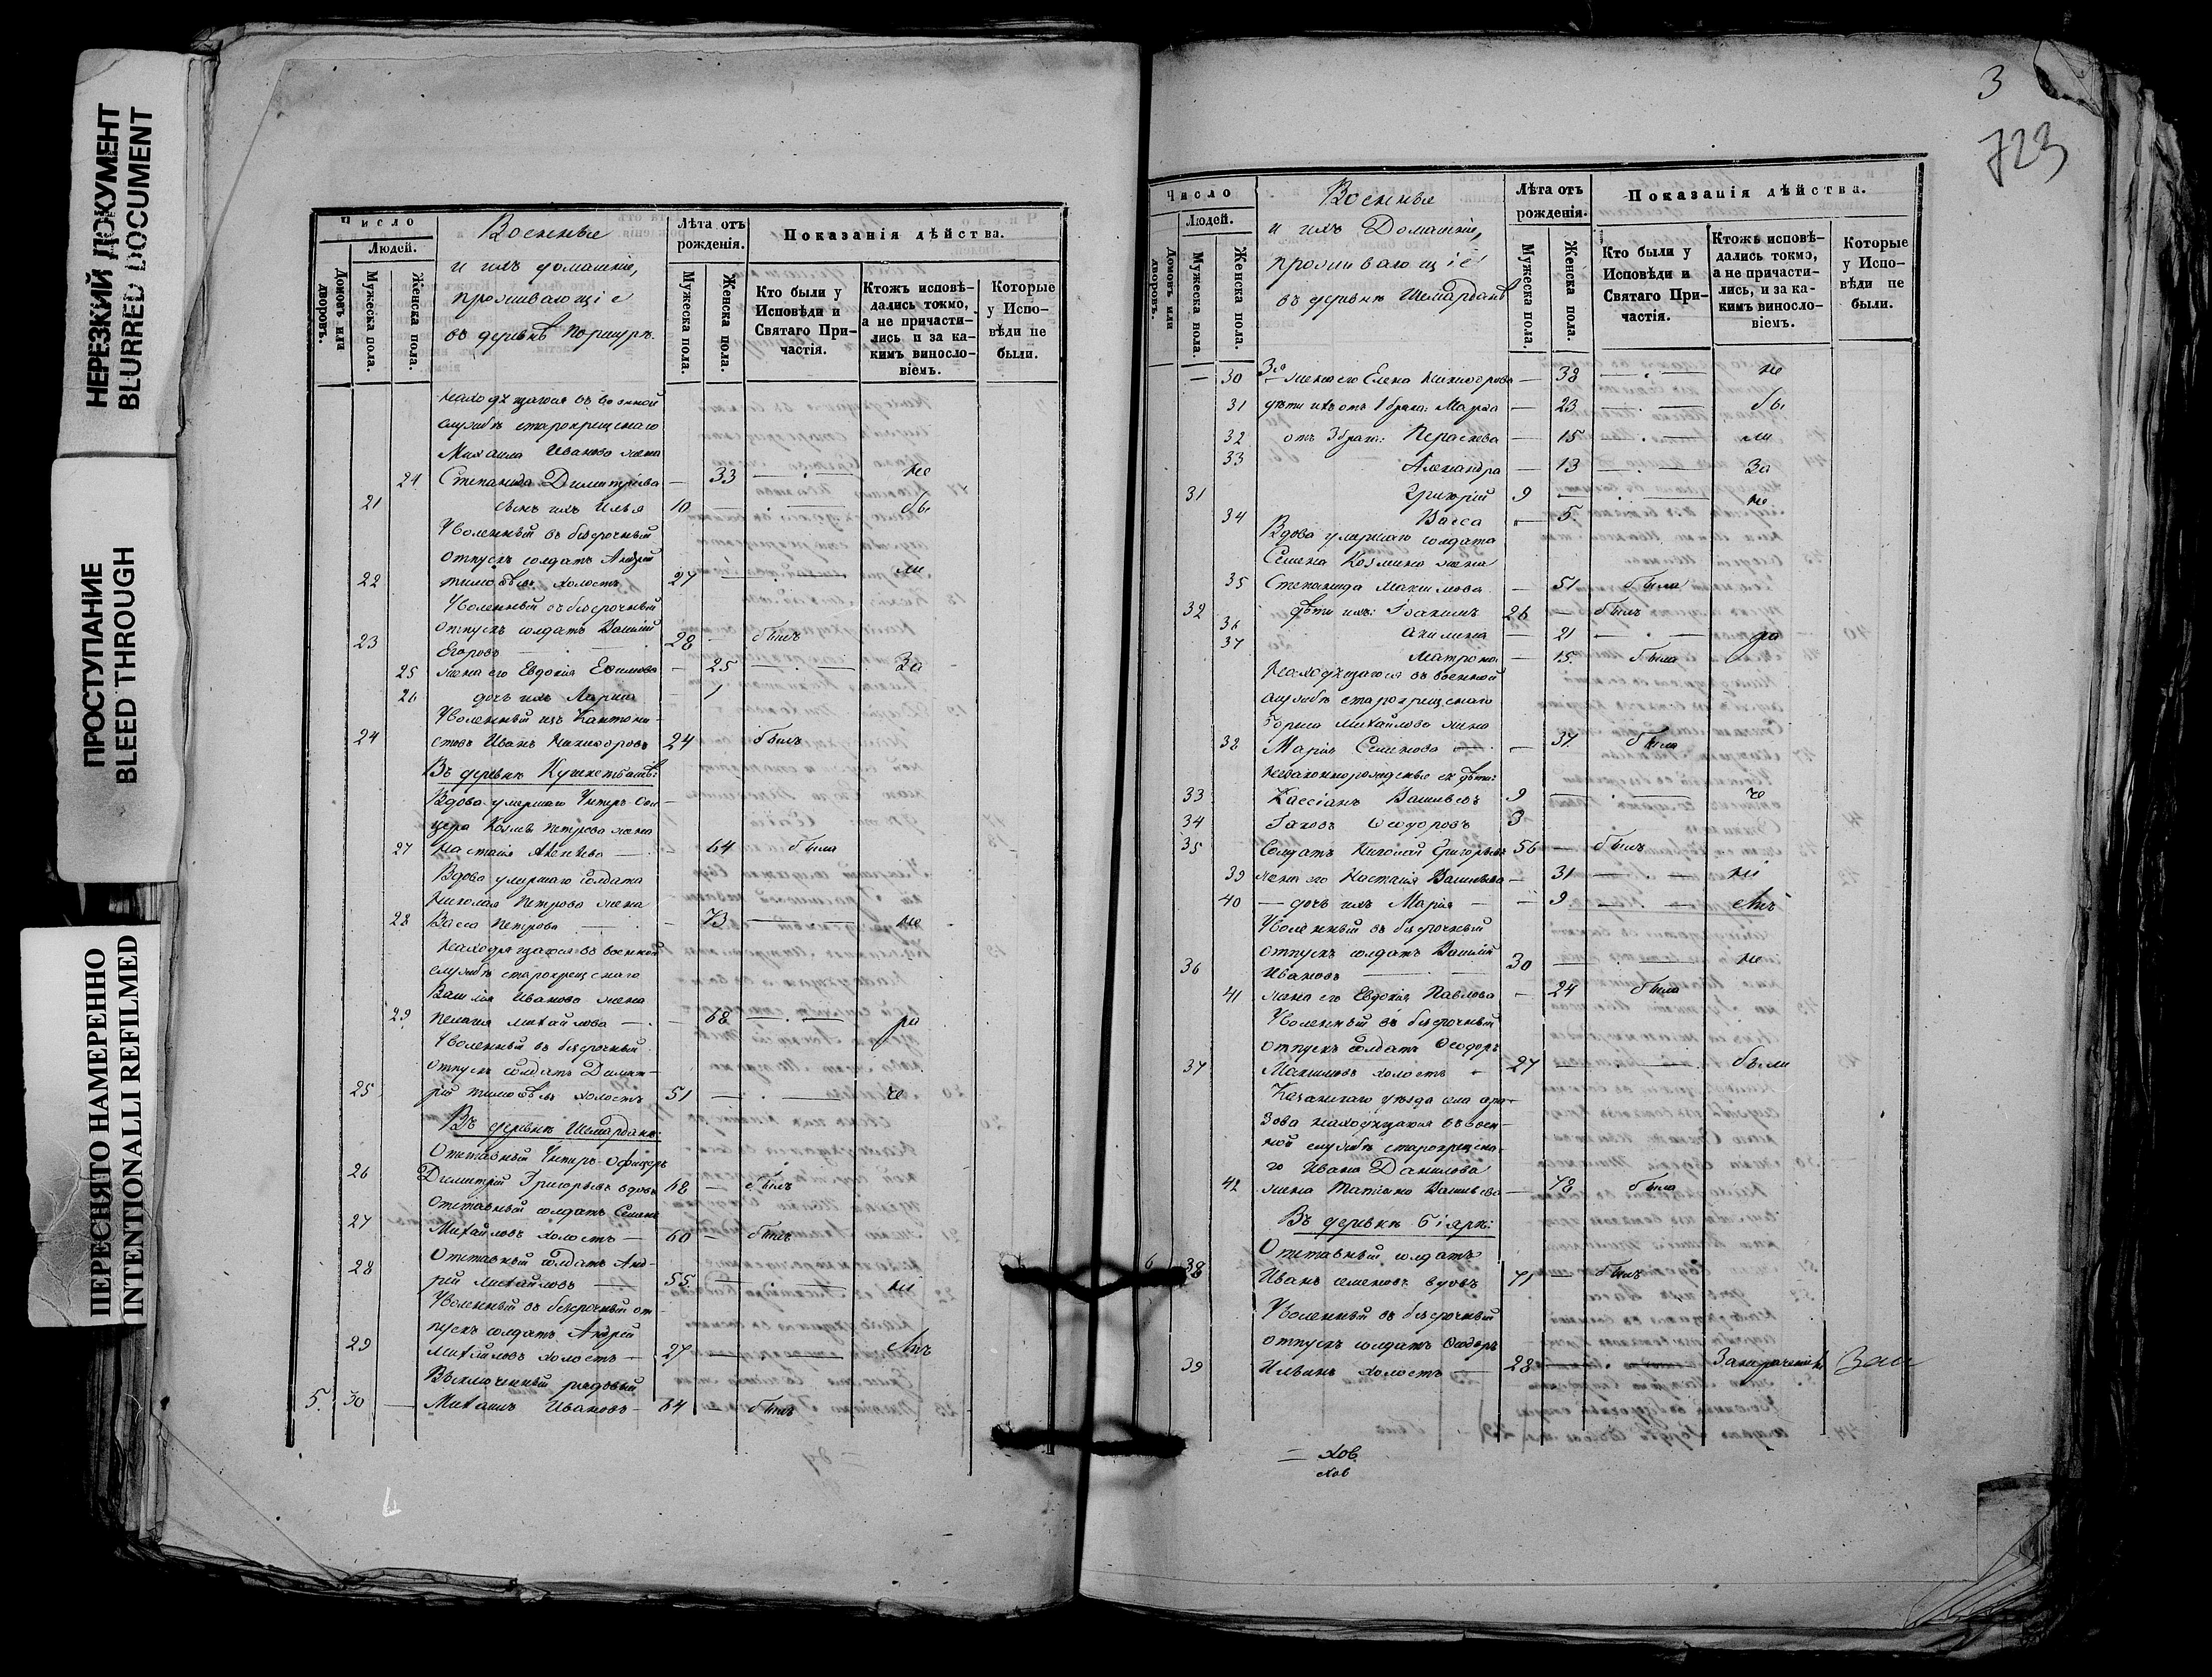 НЕРЕЗКИЙ ДОКУМЕНТ
BLURRED DOCUMENT
ПРОСТУПАНИЕ
BLEED THROUGH
ПЕРЕСНЯТО НАМЕРЕННО
INTENTIONALLI REFILMED
Число
Людей.
Домовъ или дворовъ.
Мужеска пола.
Женска пола.
Военные
и ихъ домашніе,
проживающіе
въ деревнѣ Поршуръ.
Лѣта отъ рожденія.
Мужеска пола.
Женска пола.
Показанія дѣйства.
Кто были у Исповѣди и Святаго Причастія.
Ктожъ исповѣдались токмо, а не причастились и за какимъ винословіемъ.
Которые у Исповѣди не были.
находящагося въ военной
службѣ старокрещенаго
Михаила Иванова жена
24 Степанида Димитріева — 33 — . — не
21 сынъ ихъ Илья 10 — . — бы
Уволенный въ безсрочный
отпускъ солдатъ Андрей
22 Тимоѳеевъ холостъ 27 — . — ли
Уволенный въ безсрочный
отпускъ солдатъ Василій
23 Егоровъ — 28 — былъ
25 жена его Евдокія Ефимова — 25 — . — За
26 дочь ихъ Марѳа — 1
Уволенный изъ Кантони-
24 стовъ Иванъ Никифоровъ 24 былъ
Въ деревнѣ
Вдова умершаго Унтеръ-Офи-
цера Петрова жена
27 Настасія Алексѣева — 64 была
Вдова умершаго солдата
Николая Петрова жена
28 Васса Петрова — 73 — . — не
Находящагося въ военной
службѣ старокрещенаго
Василія Иванова жена
29 Пелагія Михайлова — 68 — . — ра
Уволенный въ безсрочный
отпускъ солдатъ Димит-
25 рій Тимоѳеевъ холостъ 51 — . — че
Въ деревнѣ Шемарданѣ:
Отставный Унтеръ-Офицеръ
26 Димитрій Григорьевъ вдовъ 68 — былъ
Отставный солдатъ Семенъ
27 Михайловъ холостъ — 60 — былъ
Отставный солдатъ Анд-
28 рей Михайловъ — 55 — . — ні
Уволенный въ безсрочный от-
пускъ солдатъ Андрей
29 Михайловъ холостъ — 27 — . — емъ
Выключенный рядовый
5. 30 — Михаилъ Ивановъ — 64 — былъ
3
723
Число
Людей.
Домовъ или дворовъ.
Мужеска пола.
Женска пола.
Военные
и ихъ Домашніе,
проживающіе
въ деревнѣ Шемарданѣ
Лѣта отъ рожденія.
Мужеска пола.
Женска пола.
Показанія дѣйства.
Кто были у Исповѣди и Святаго Причастія.
Ктожъ исповѣдались токмо, а не причастились, и за какимъ винословіемъ.
Которые у Исповѣди не были.
— 30 3я жена его Елена Никифорова — 38 — . — не
31 дѣти ихъ отъ 1 брака: Марѳа — 23 — . — бы
32 отъ 3 брака: Параскева — 15 — . — ли
33 Александра — 13 — . — За
31 Григорій 9 — . — не
34 Васса — 5
Вдова умершаго солдата
Семена Козмина жена
35 Степанида Максимова — 51 была
32 дѣти ихъ: Іоакимъ 26 — былъ
36 Акилина — 21 — . — ра
37 Матрона — 15 была
Находящагося въ военной
службѣ старокрещенаго
Бориса Михайлова жена
38 Марія Семенова — 37 была
незаконнорожденные ея дѣти:
33 Кассіанъ Васильевъ 9 — . — че
34 Іаковъ Ѳеодоровъ 3
35 Солдатъ Николай Григорьевъ 56 — былъ
39 жена его Настасія Васильева — 31 — . — ні
40 — дочь ихъ Марія — 9 — . — емъ
Уволенный въ безсрочный
отпускъ солдатъ Василій
36 Ивановъ — 30 — . — не
41 жена его Евдокія Павлова — 24 была
Уволенный въ безсрочный
отпускъ солдатъ Ѳеодоръ
37 Максимовъ холостъ — 27 — . — были
Казанскаго уѣзда села Ар-
зова находящагося въ воен-
ной службѣ старокрещена-
го Ивана Данилова
42 жена Татіана Васильева — 48 была
Въ деревнѣ Біярѣ:
Отставный солдатъ
6 38 Иванъ Семеновъ вдовъ 71 — былъ
Уволенный въ безсрочный
отпускъ солдатъ Ѳеодоръ
39 Ильинъ холостъ — 28 — . —
= хов
хов